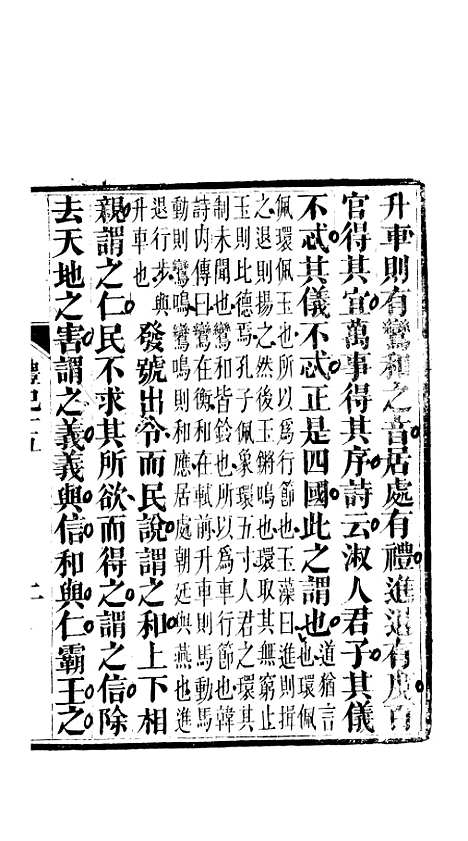 升車則有鸞和之音居處有禮進退有度百
官得其宜萬事得其序詩云淑人君子其儀
不忒其儀不忒正是四國此之謂也道猶言也環佩
佩環佩玉也所以爲行節也玉藻曰進則揖
之退則揚之然後玉鏘鳴也環取其無窮止
玉則比德焉孔子佩象環五寸人君之環其
制未聞也鸞和皆鈴也所以爲車行節也韓
詩内傳曰鸞在衡和在軾前升車則馬動馬
動則鸞鳴鸞鳴則和應居處朝廷與燕也進
退行步與
升車也
發號出令而民說謂之和上下相
親謂之仁民不求其所欲而得之謂之信除
去天地之害謂之義義與信和與仁霸王之
禮記十五
二